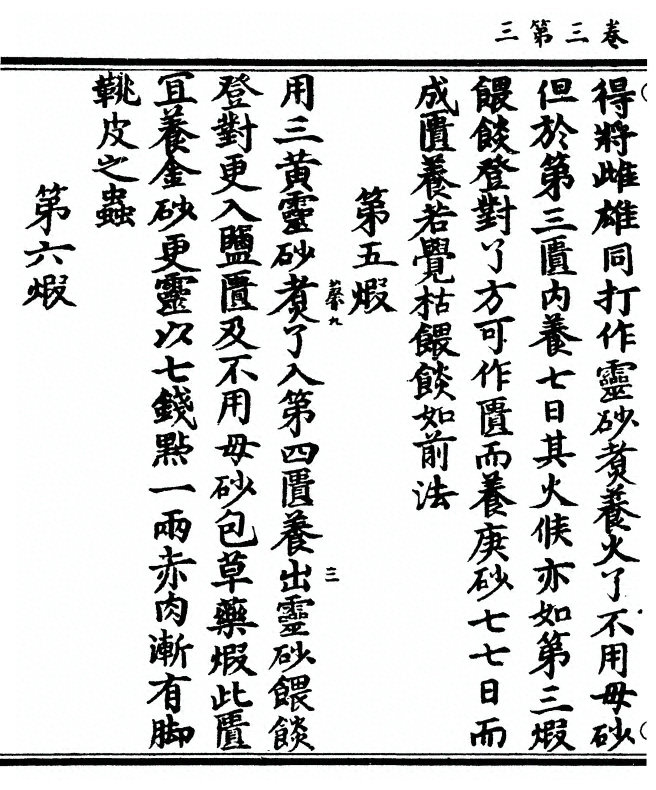 卷三第三
得將雌雄同打作靈砂煑養火了不用母砂
但於第三匱内養七日其火候亦如第三煆
餵餤登對了方可作匱而養庚砂七七日而
成匱養若覺枯餵餤如前法
第五煆
用三黃靈砂煑了入第四匱養出靈砂餵餤
登對更入鹽匱及不用母砂包草藥煆此匱
宜養金砂更靈以七錢點一兩赤肉漸有脚
靴皮之蟲
第六煆